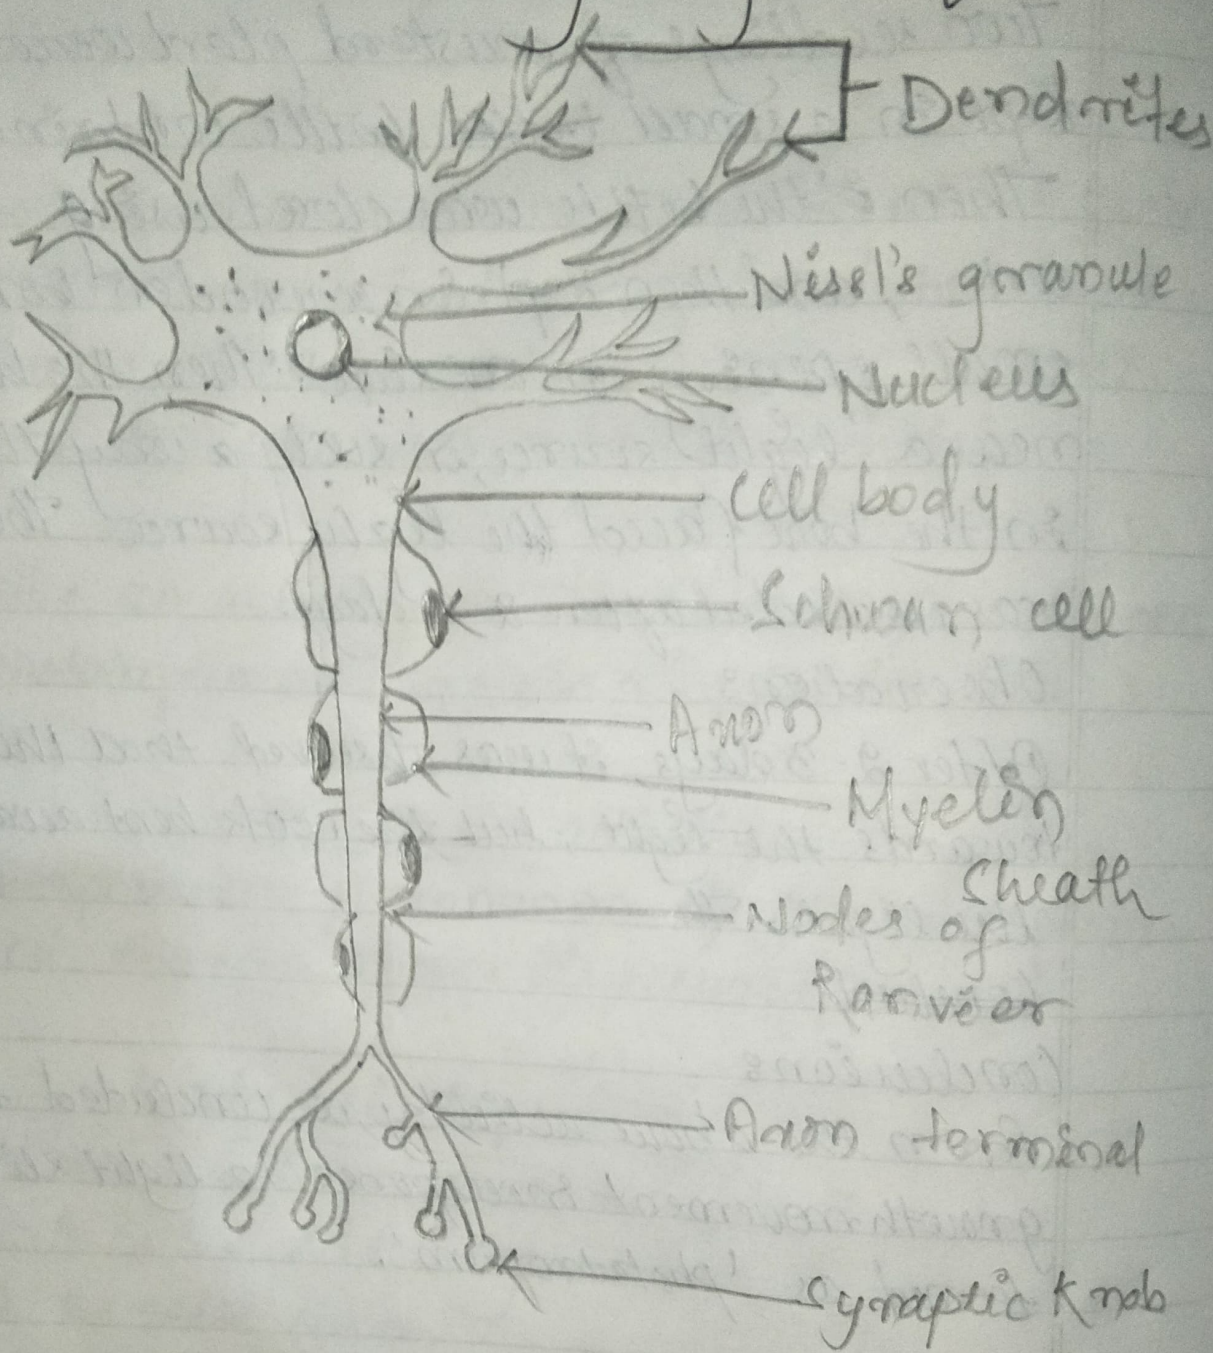 Dendrites
Nissl's granule
Nucleus
Cell body
Schwan cell
Axon
Myelin
Sheath
Nodes of
Ranvier
Axon terminal
Synaptic Knob